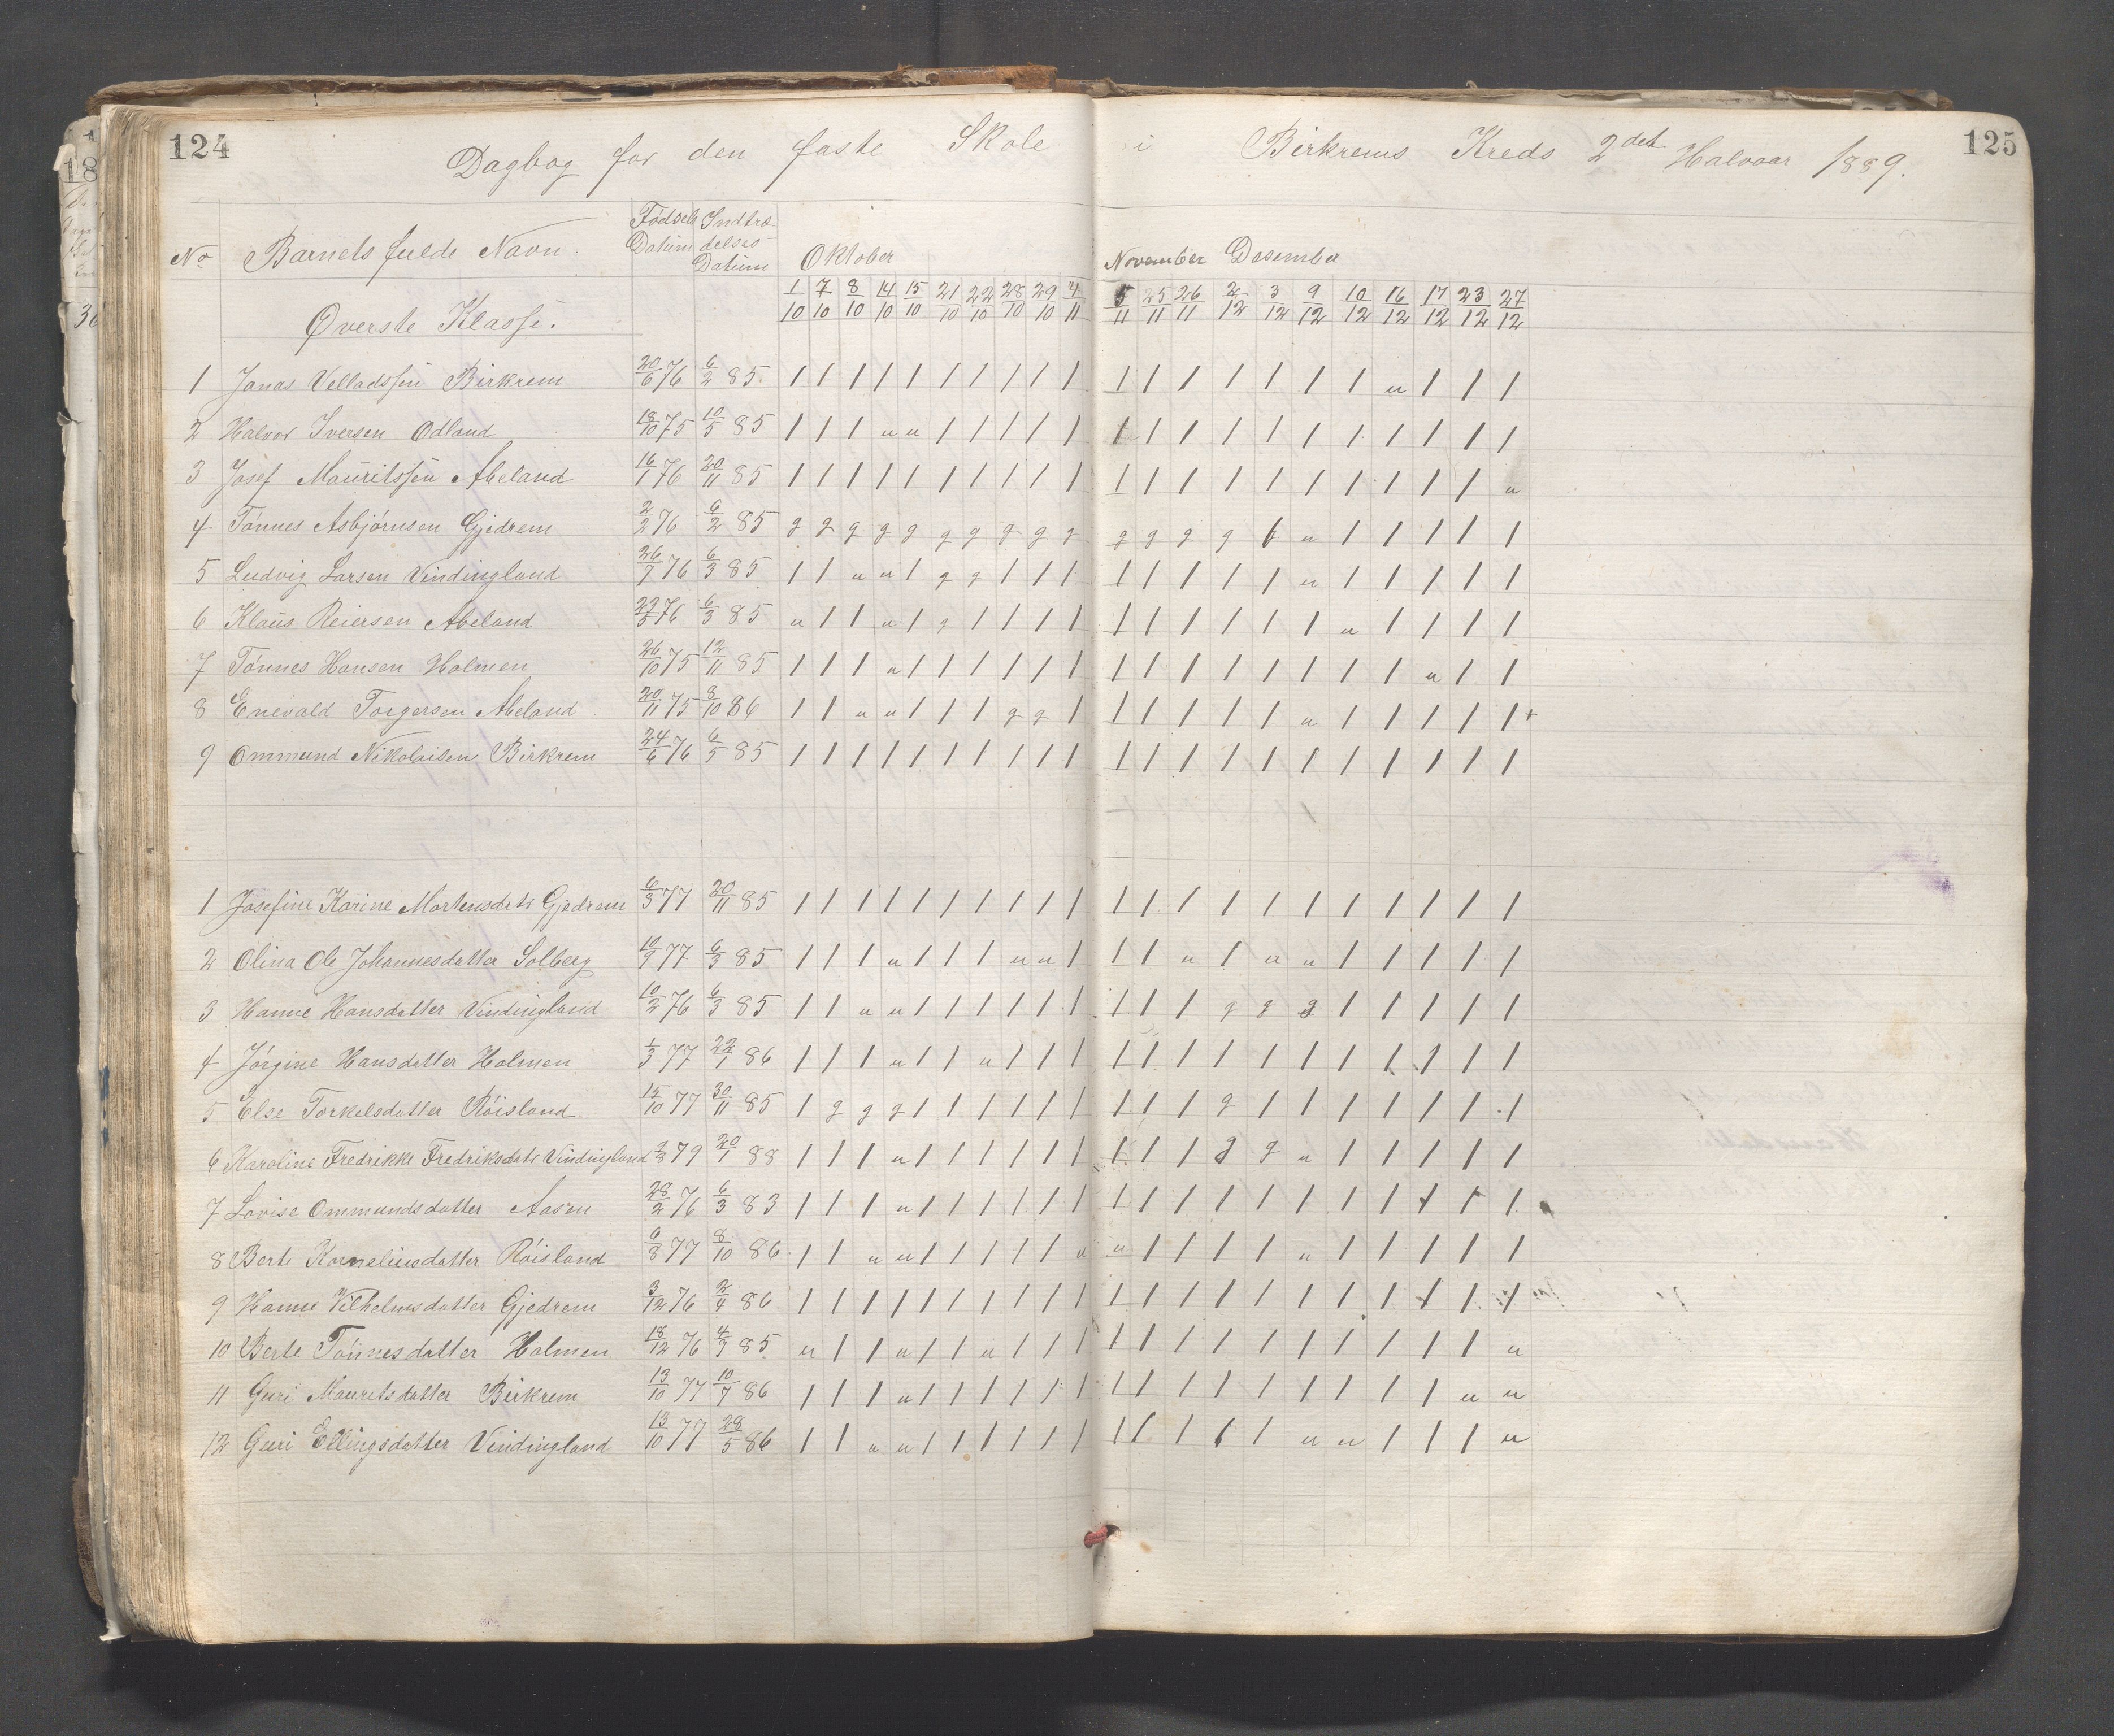 124
125
Dagbog for den faste Skole i Birkrems Kreds 2det Halvaar 1889.
No Barnets fulde Navn. Fødsels Datum Indtrædelses Datum Oktober November Desember
Øverste Klasse. 1/10 7/10 8/10 14/10 15/10 21/10 22/10 28/10 29/10 4/11 5/11 25/11 26/11 2/12 3/12 9/12 10/12 16/12 17/12 23/12 27/12
1 Jonas Velladssen Birkrem 20/6 76 6/2 85 / / / / / / / / / / / / / / / / / u / / /
2 Halvor Iversen Ødland 18/10 75 10/5 85 / / / u u / / / / / / / / / / / / / / / /
3 Josef Mauritssen Abeland 16/1 76 20/11 85 / / / / / / / / / / / / / / / / / / / / u
4 Tønnes Asbjørnsen Gjedrem 2/2 76 6/2 85 g g g g g g g g g g g g g g / u / / / / /
5 Ludvig Larsen Vindingland 26/7 76 6/3 85 / / u u / g g / / / / / / / / u / / / / /
6 Klaus Reiersen Abeland 22/5 76 6/3 85 u / / u / g / / / / / / / / / / u / / / /
7 Tønnes Hansen Holmen 26/10 75 12/11 85 / / / u / / / / / / / / / / / / / / u / /
8 Enevald Torgersen Abeland 20/11 75 8/10 86 / / u u / / / g g / / / / / / u / / / / / +
9 Ommund Nikolaisen Birkrem 24/6 76 6/5 85 / / / / / / / / / / / / / / / / / / / / /
1 Josefine Karine Mortensdatr Gjedrem 6/3 77 20/11 85 / / / / / / / / / / / / / / / / / / / / /
2 Olina Ole Johannesdatter Solberg 10/9 77 6/3 85 / / / u / / / u u / / / u / u u / / / / /
3 Hanne Hansdatter Vindingland 10/2 76 6/3 85 / / u u / / / / / / / / / g g g / / / / /
4 Jørgine Hansdatter Holmen 1/3 77 22/1 86 / / / u / / u / / / / / / / / / / / / / /
5 Else Torkelsdatter Røisland 15/10 77 30/11 85 / g g g / / / / / / / / / g / / / / / / /
6 Karoline Fredrikke Fredriksdatr Vindingland 2/8 79 20/1 88 / / / u / / / / / / / / / g g u / / / / /
7 Lovise Ommundsdatter Aasen 28/2 76 6/3 83 / / / u / / / / / / / / / / / / / / / / /
8 Berte Korneliusdatter Røisland 6/8 77 8/10 86 / / u u / / / / / u u / / / / u / / / / /
9 Hanne Vilhelmsdatter Gjedrem 3/12 76 2/4 86 / / / / / / / / / / / / / / / / / / / / /
10 Berte Tønnesdatter Holmen 18/12 76 4/3 85 u / / u / / u / / / / / / / / / / / / / u
11 Guri Mauritsdatter Birkrem 13/10 77 10/7 86 / / / u / / / / / / / / / / / / / / / u u
12 Guri Ellingsdatter Vindingland 13/10 77 28/5 86 / / u u / / / / / / / / / / / u u / / / u